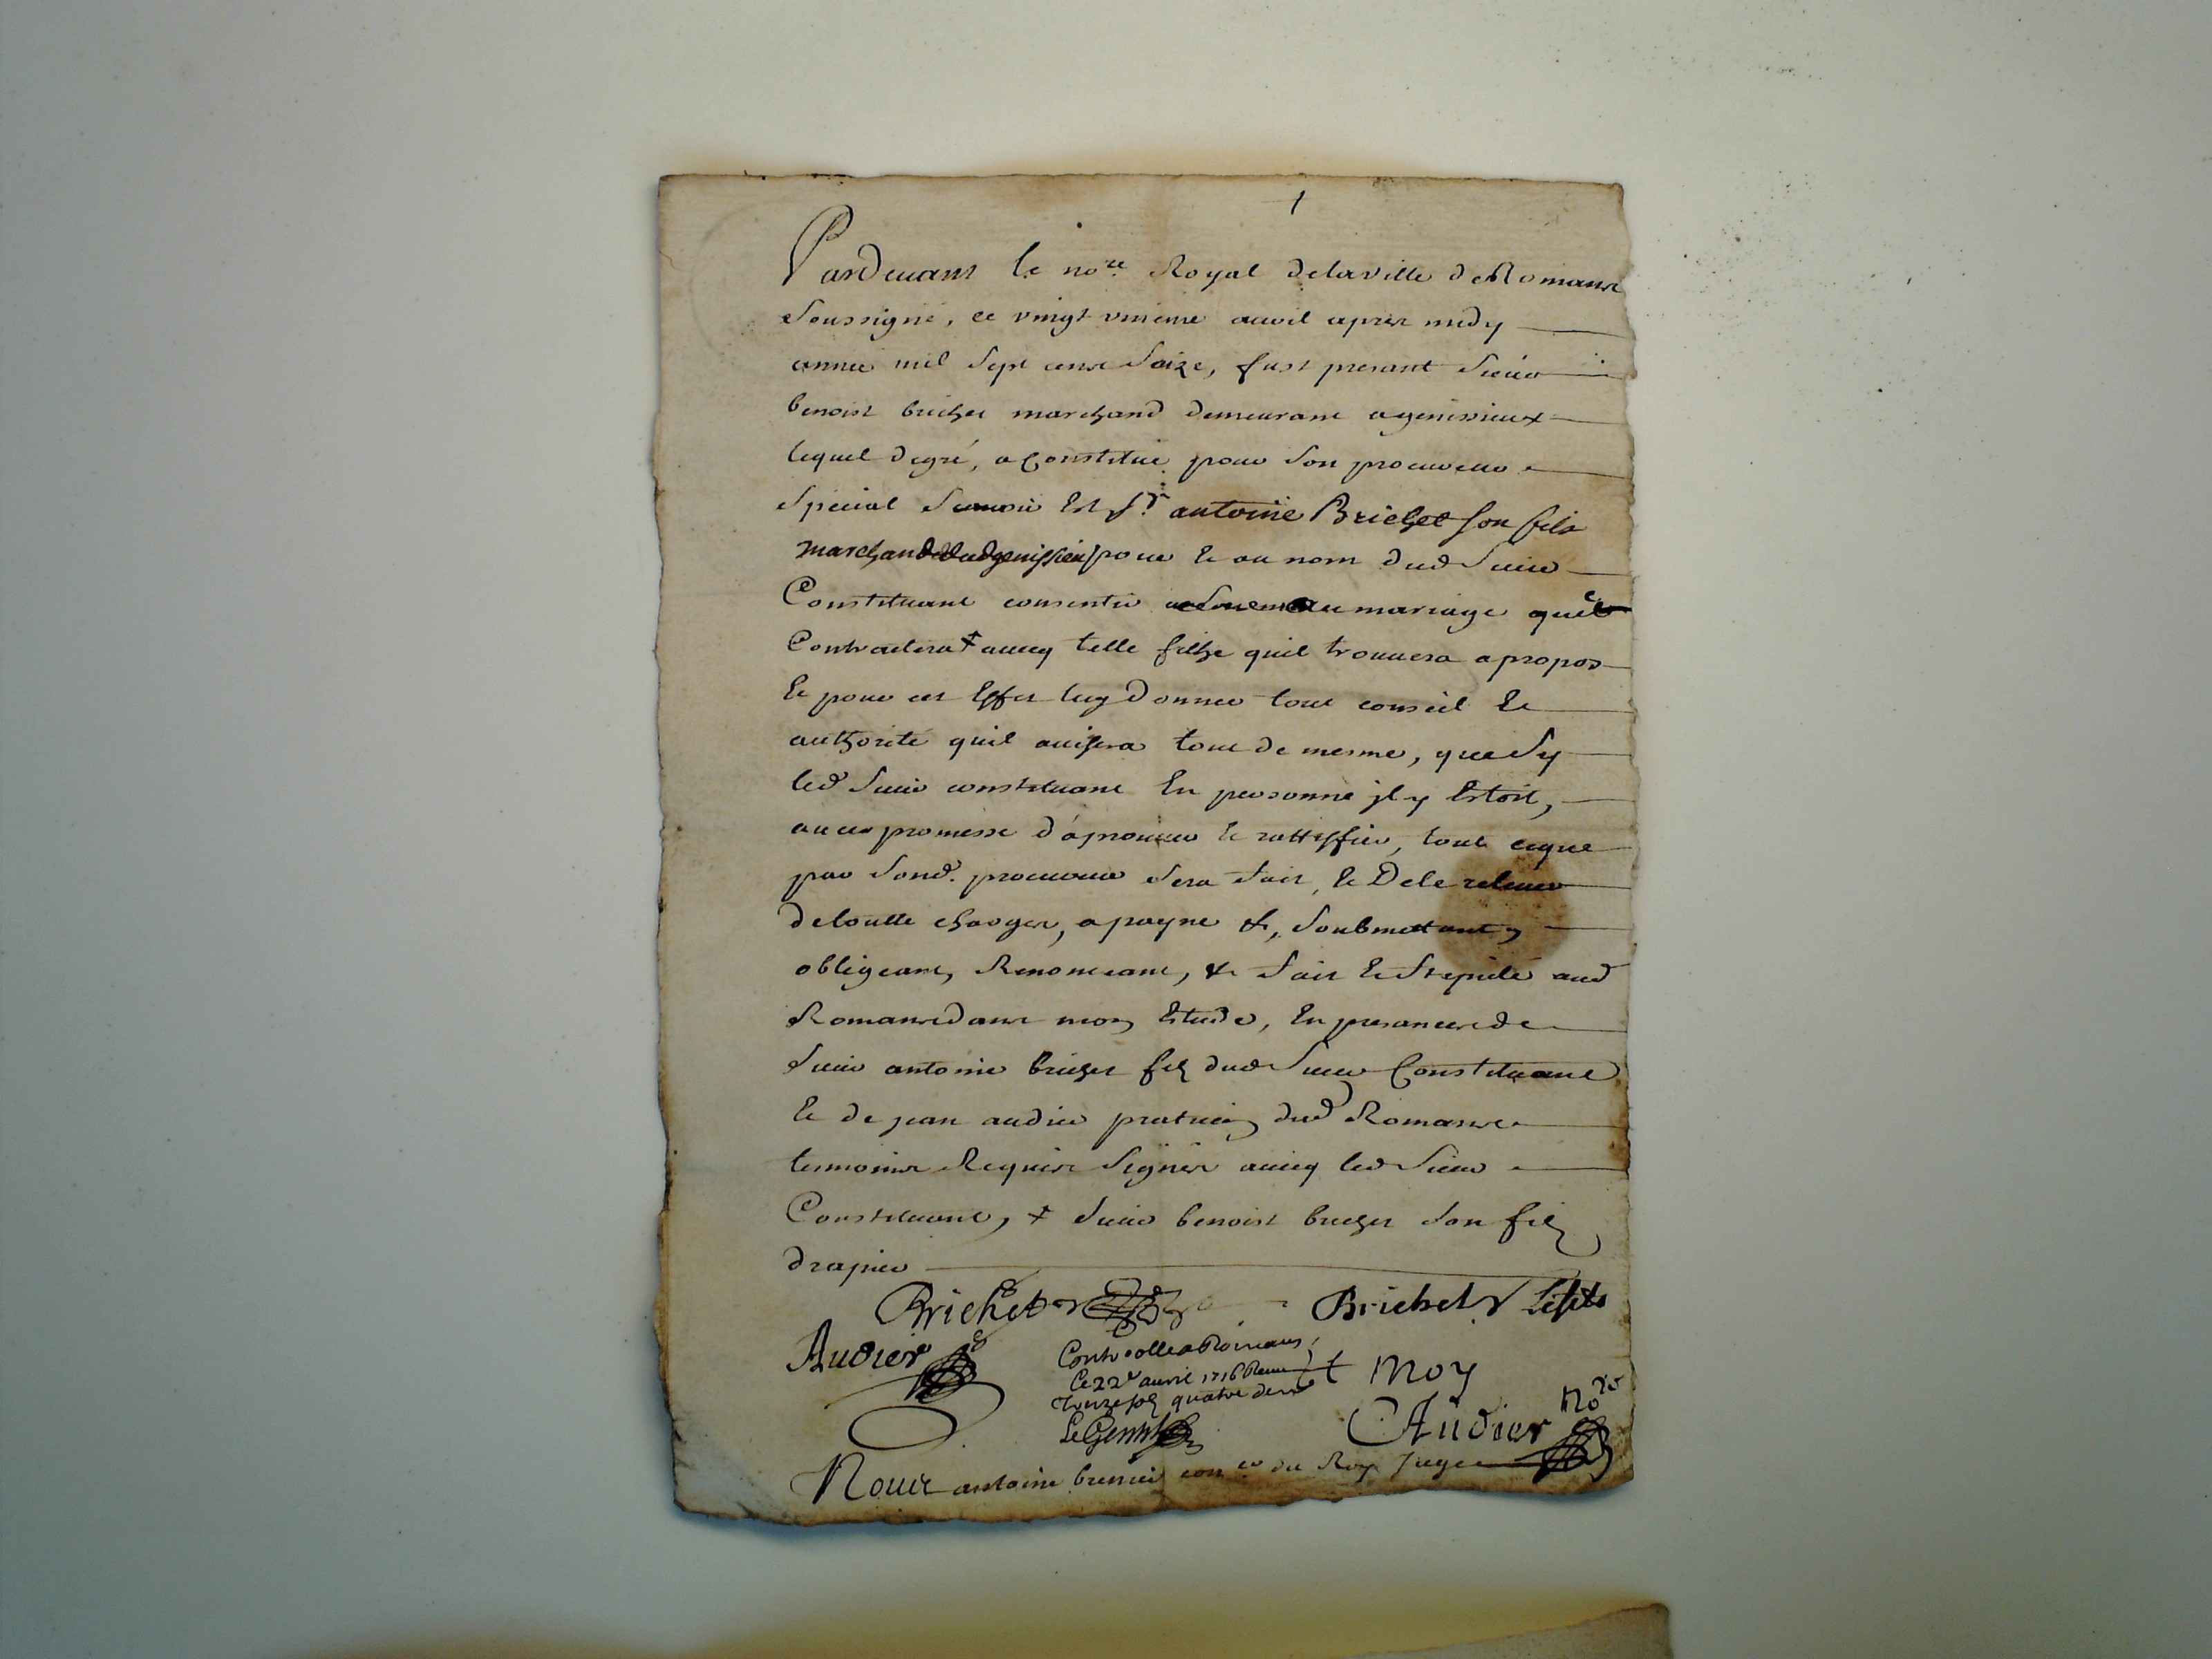 1
Pardeuant le no.re Royal delaville de Romans
Soussigné, ce vingt unieme avril apres midy
année mil Sept cens Saize, fust presant Sieur
benoist brichet marchand demeurant a genissieux
lequel degré, a Constitué pour Son procureur
Special Scavoir Est Sr. antoine Brichet son fils
marchand dud genissieu pour Et au nom dud Sieur
Constituant consentir au mariage quil
Contractera + avecq telle filhe quil trouuera apropos
Et pour cet Effet luy donner tout conseil Et
authorité quil avisera tout de mesme, que Sy
led Sieur constituant En personne jl y Estoit,
avec promesse d'aprouuer Et rattiffier, tout ceque
par Sond. procureur Sera fait, Et De le releuer
de toutte charges, a payne &, Soubmettant,
obligeant, Renonceant, & fait Et Stepulé aud
Romans dans mon Etude, En presances de
Sieur antoine brichet filz dud Sieur Constituant
Et de jean audier praticien dud Romans
temoins Requis Signés avecq led Sieur
Constituant, + Sieur benoist brichet Son filz
drapier
Brichet Brichet Le fils
Audier
Controlle a Romans
Ce 22e avril 1716 Receu
Treize solz quatre den
Le Gentil
Et Moy
Audier No.re
Nous antoine con.er du Roy Juge